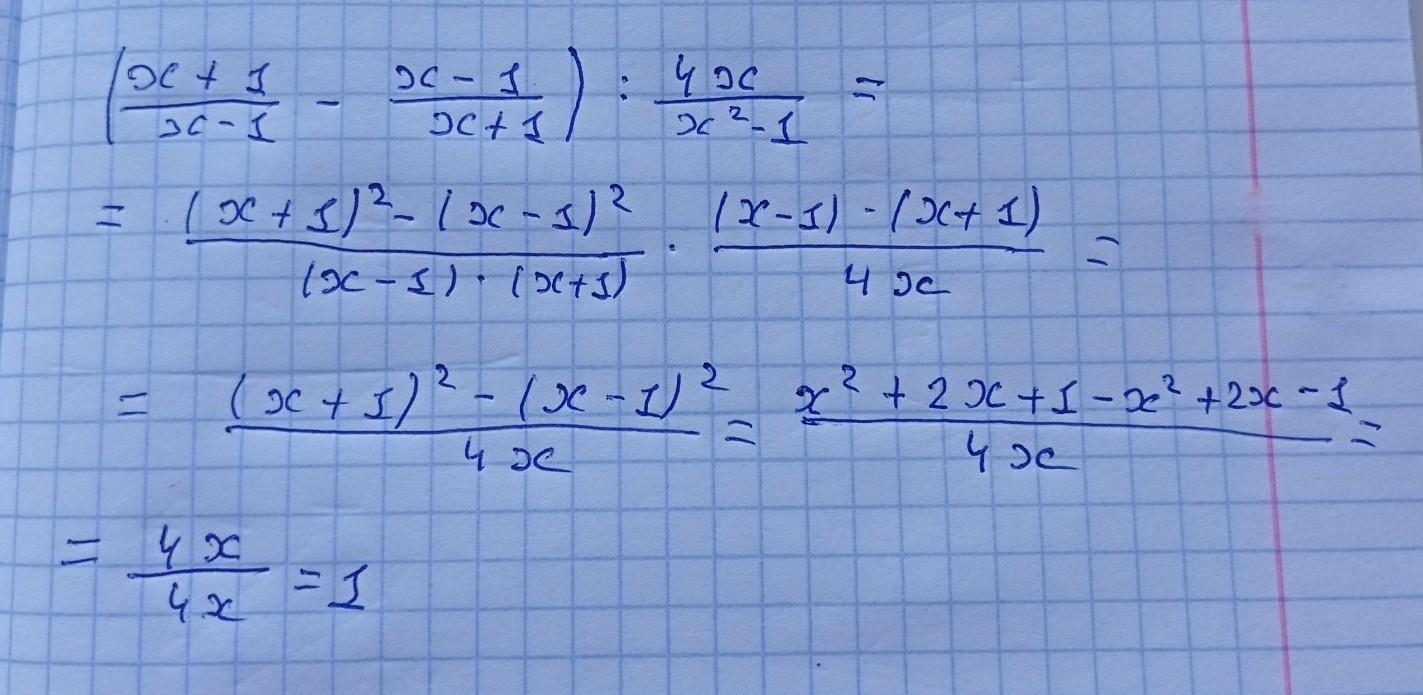 (x + 1 / x - 1 - x - 1 / x + 1) : 4x / x² - 1 =
= (x + 1)² - (x - 1)² / (x - 1) · (x + 1) · (x - 1) · (x + 1) / 4x =
= (x + 1)² - (x - 1)² / 4x = x² + 2x + 1 - x² + 2x - 1 / 4x =
= 4x / 4x = 1